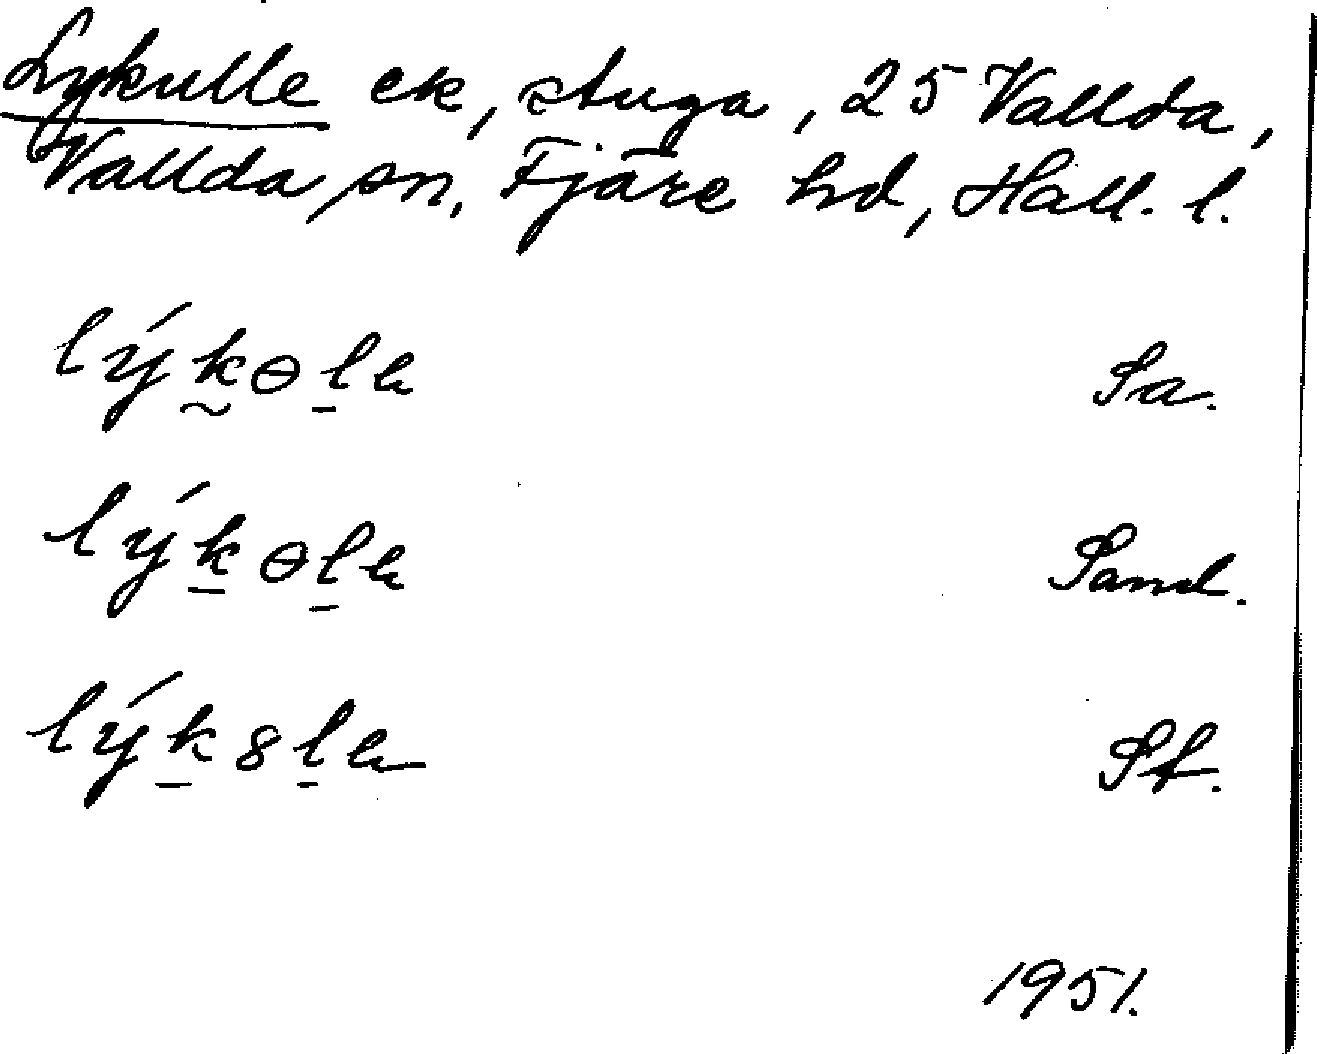 Lykulle ek, stuga, 25 Vallda,
Vallda sn, Fjäre hd, Hall. l.
lýkɵlɐ Sa.
lýkɵlɐ Sand.
lýk8lɐ Sf.
1951.